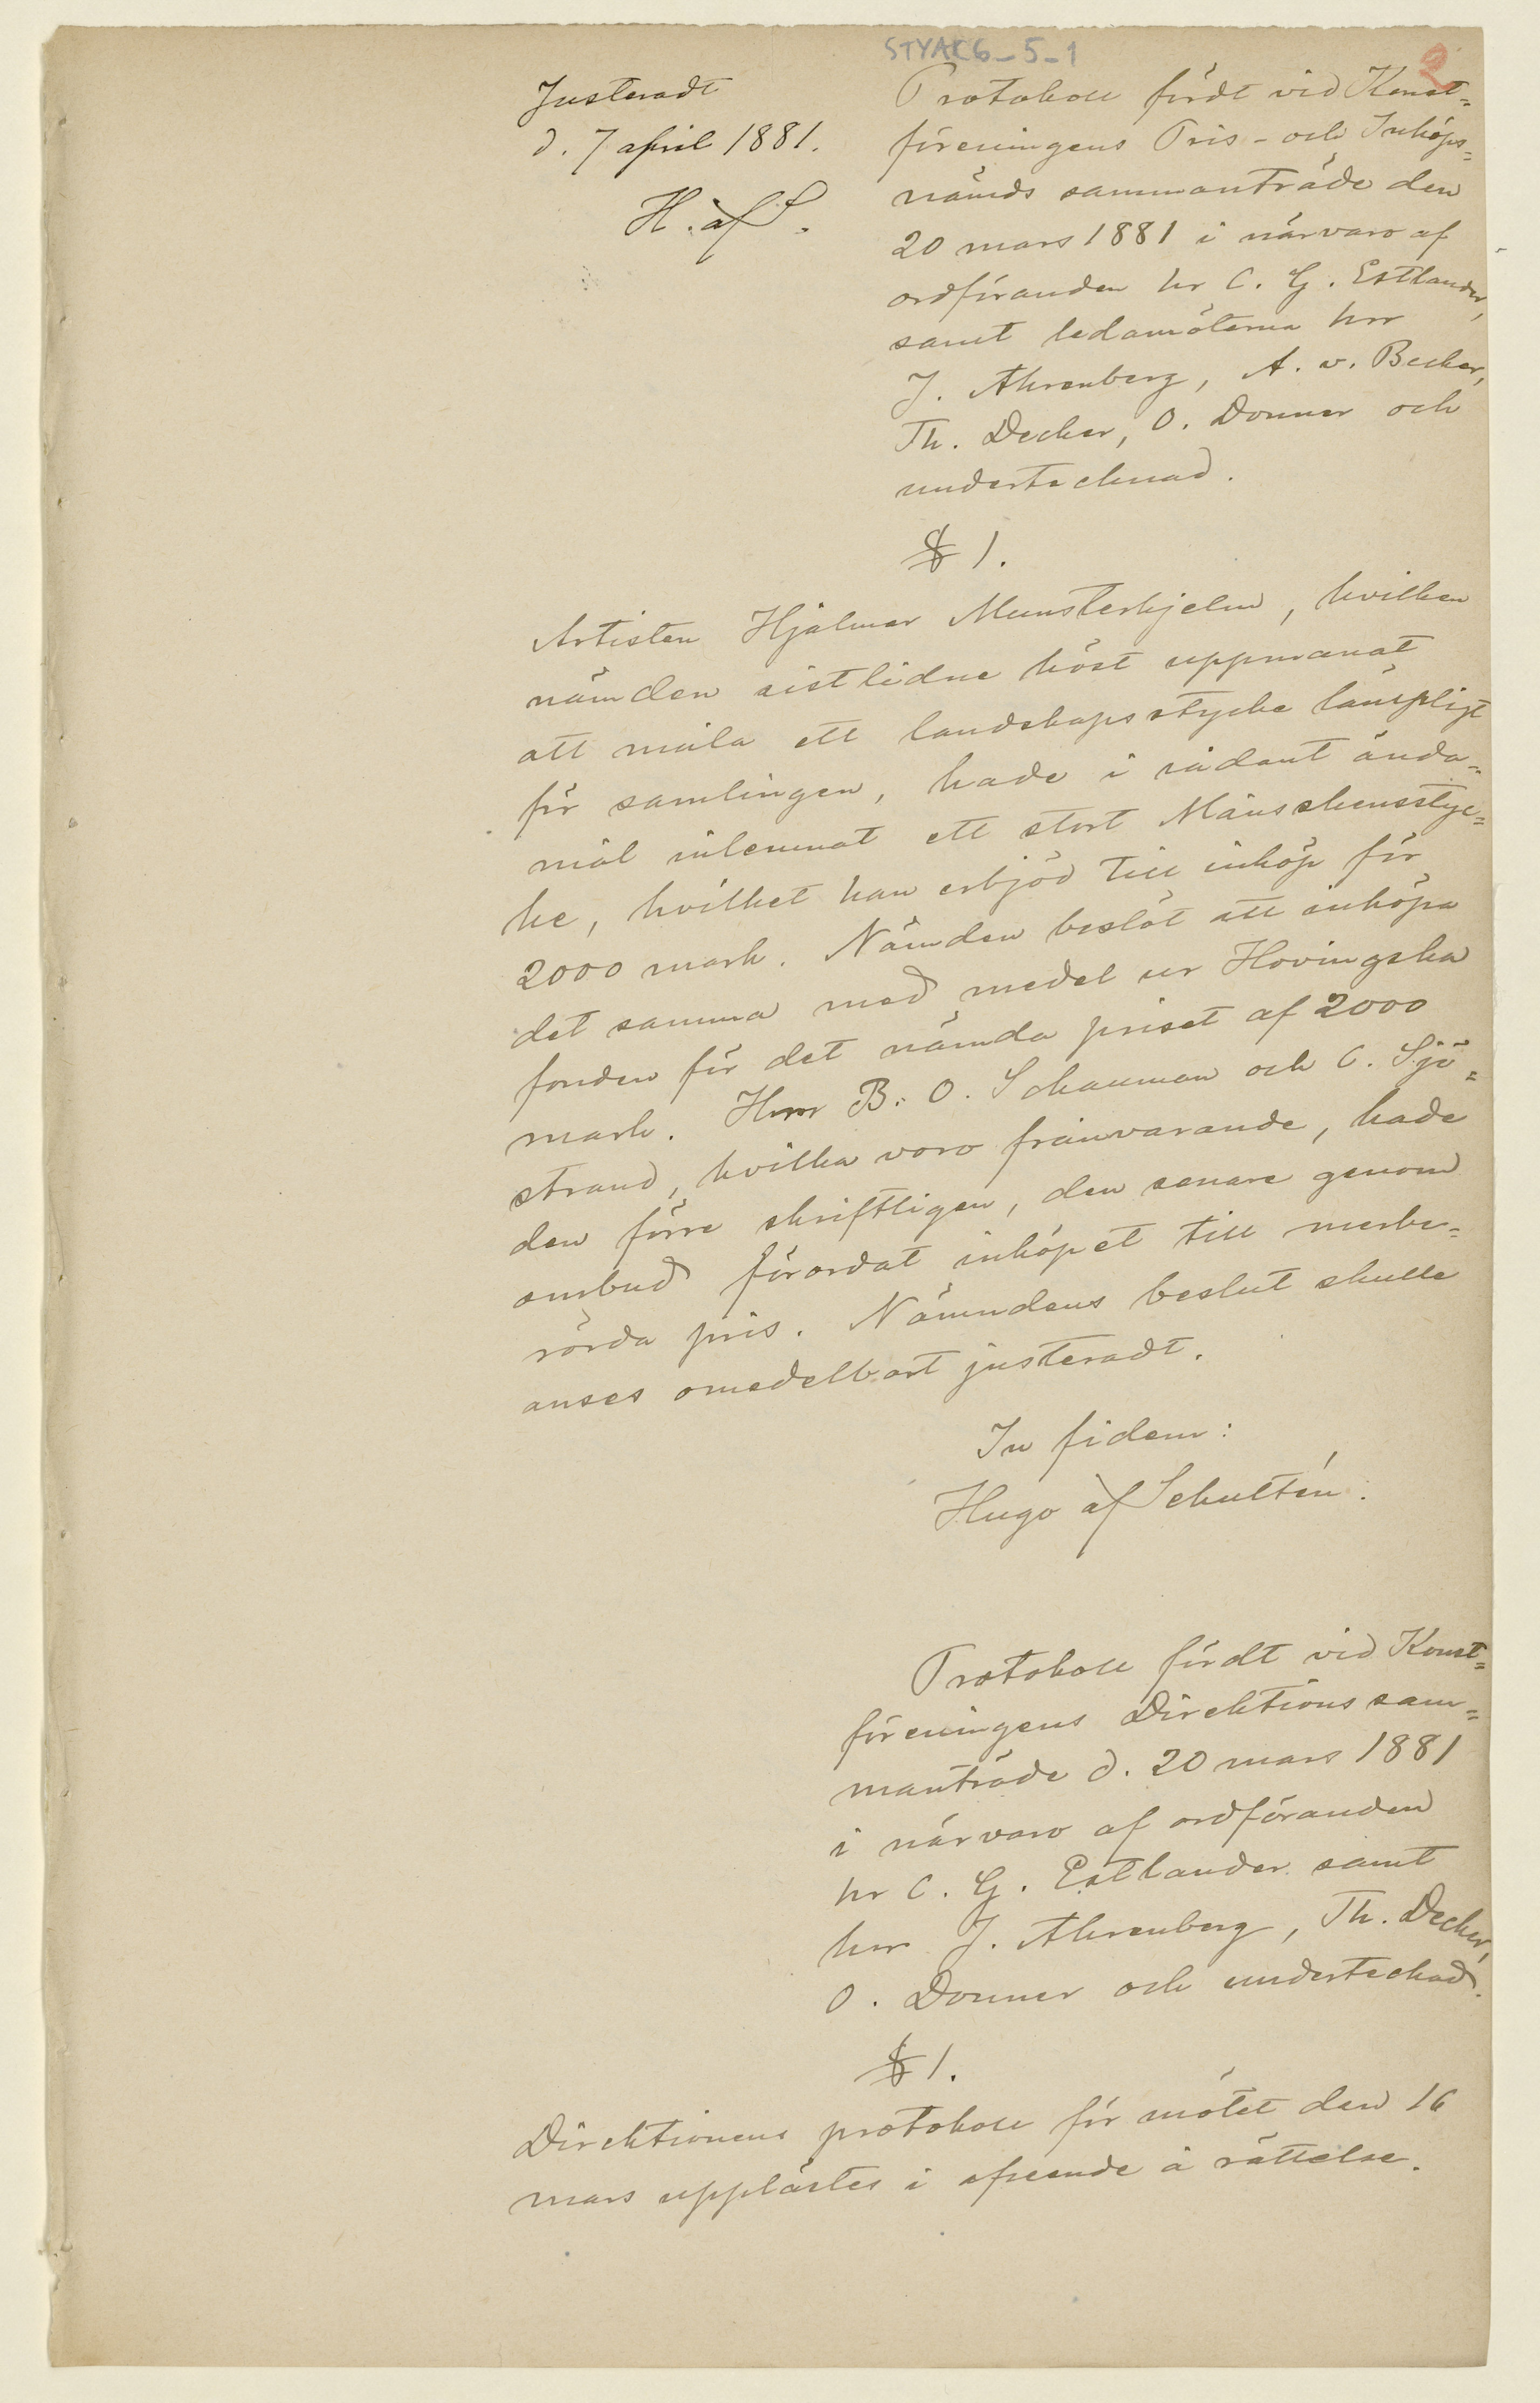 STYAK6_5_1
2
Justeradt
d. 7 april 1881.
H. af S.
Protokoll fördt vid Konst=
föreningens Pris- och Inköps=
nämds sammanträde den
20 mars 1881 i närvaro af
ordföranden hr C. G. Estlander,
samt ledamöterna hrr
J. Ahrenberg, A. v. Becker,
Th. Decker, O. Donner och
undertecknad.
§ 1.
Artisten Hjalmar Munsterhjelm, hvilken
nämden sistlidne höst uppmanat
att måla ett landskapsstycke lämpligt
för samlingen, hade i sådant ända=
mål inlemnat ett stort Månskensstyc=
ke, hvilket han erbjöd till inköp för
2000 mark. Nämden beslöt att inköpa
det samma med medel ur Hovingska
fonden för det nämda priset af 2000
mark. Hrr B. O. Schauman och C. Sjö=
strand, hvilka voro frånvarande, hade
den förre skriftligen, den senare genom
ombud förordat inköpet till merbe=
rörda pris. Nämndens beslut skulle
anses omedelbart justeradt.
In fidem:
Hugo af Schultén.
Protokoll fördt vid Konst=
föreningens Direktions sam=
manträde d. 20 mars 1881
i närvaro af ordföranden
hr C. G. Estlander samt
hrr J. Ahrenberg, Th. Decker,
O. Donner och undertecknad.
§ 1.
Direktionens protokoll för mötet den 16
mars upplästes i afseende å rättelse.